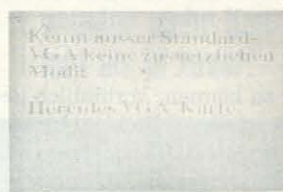 Kennt ausser Standard-
VGA keine zusetzlichen
Modi!
Hercules VGA-Karte